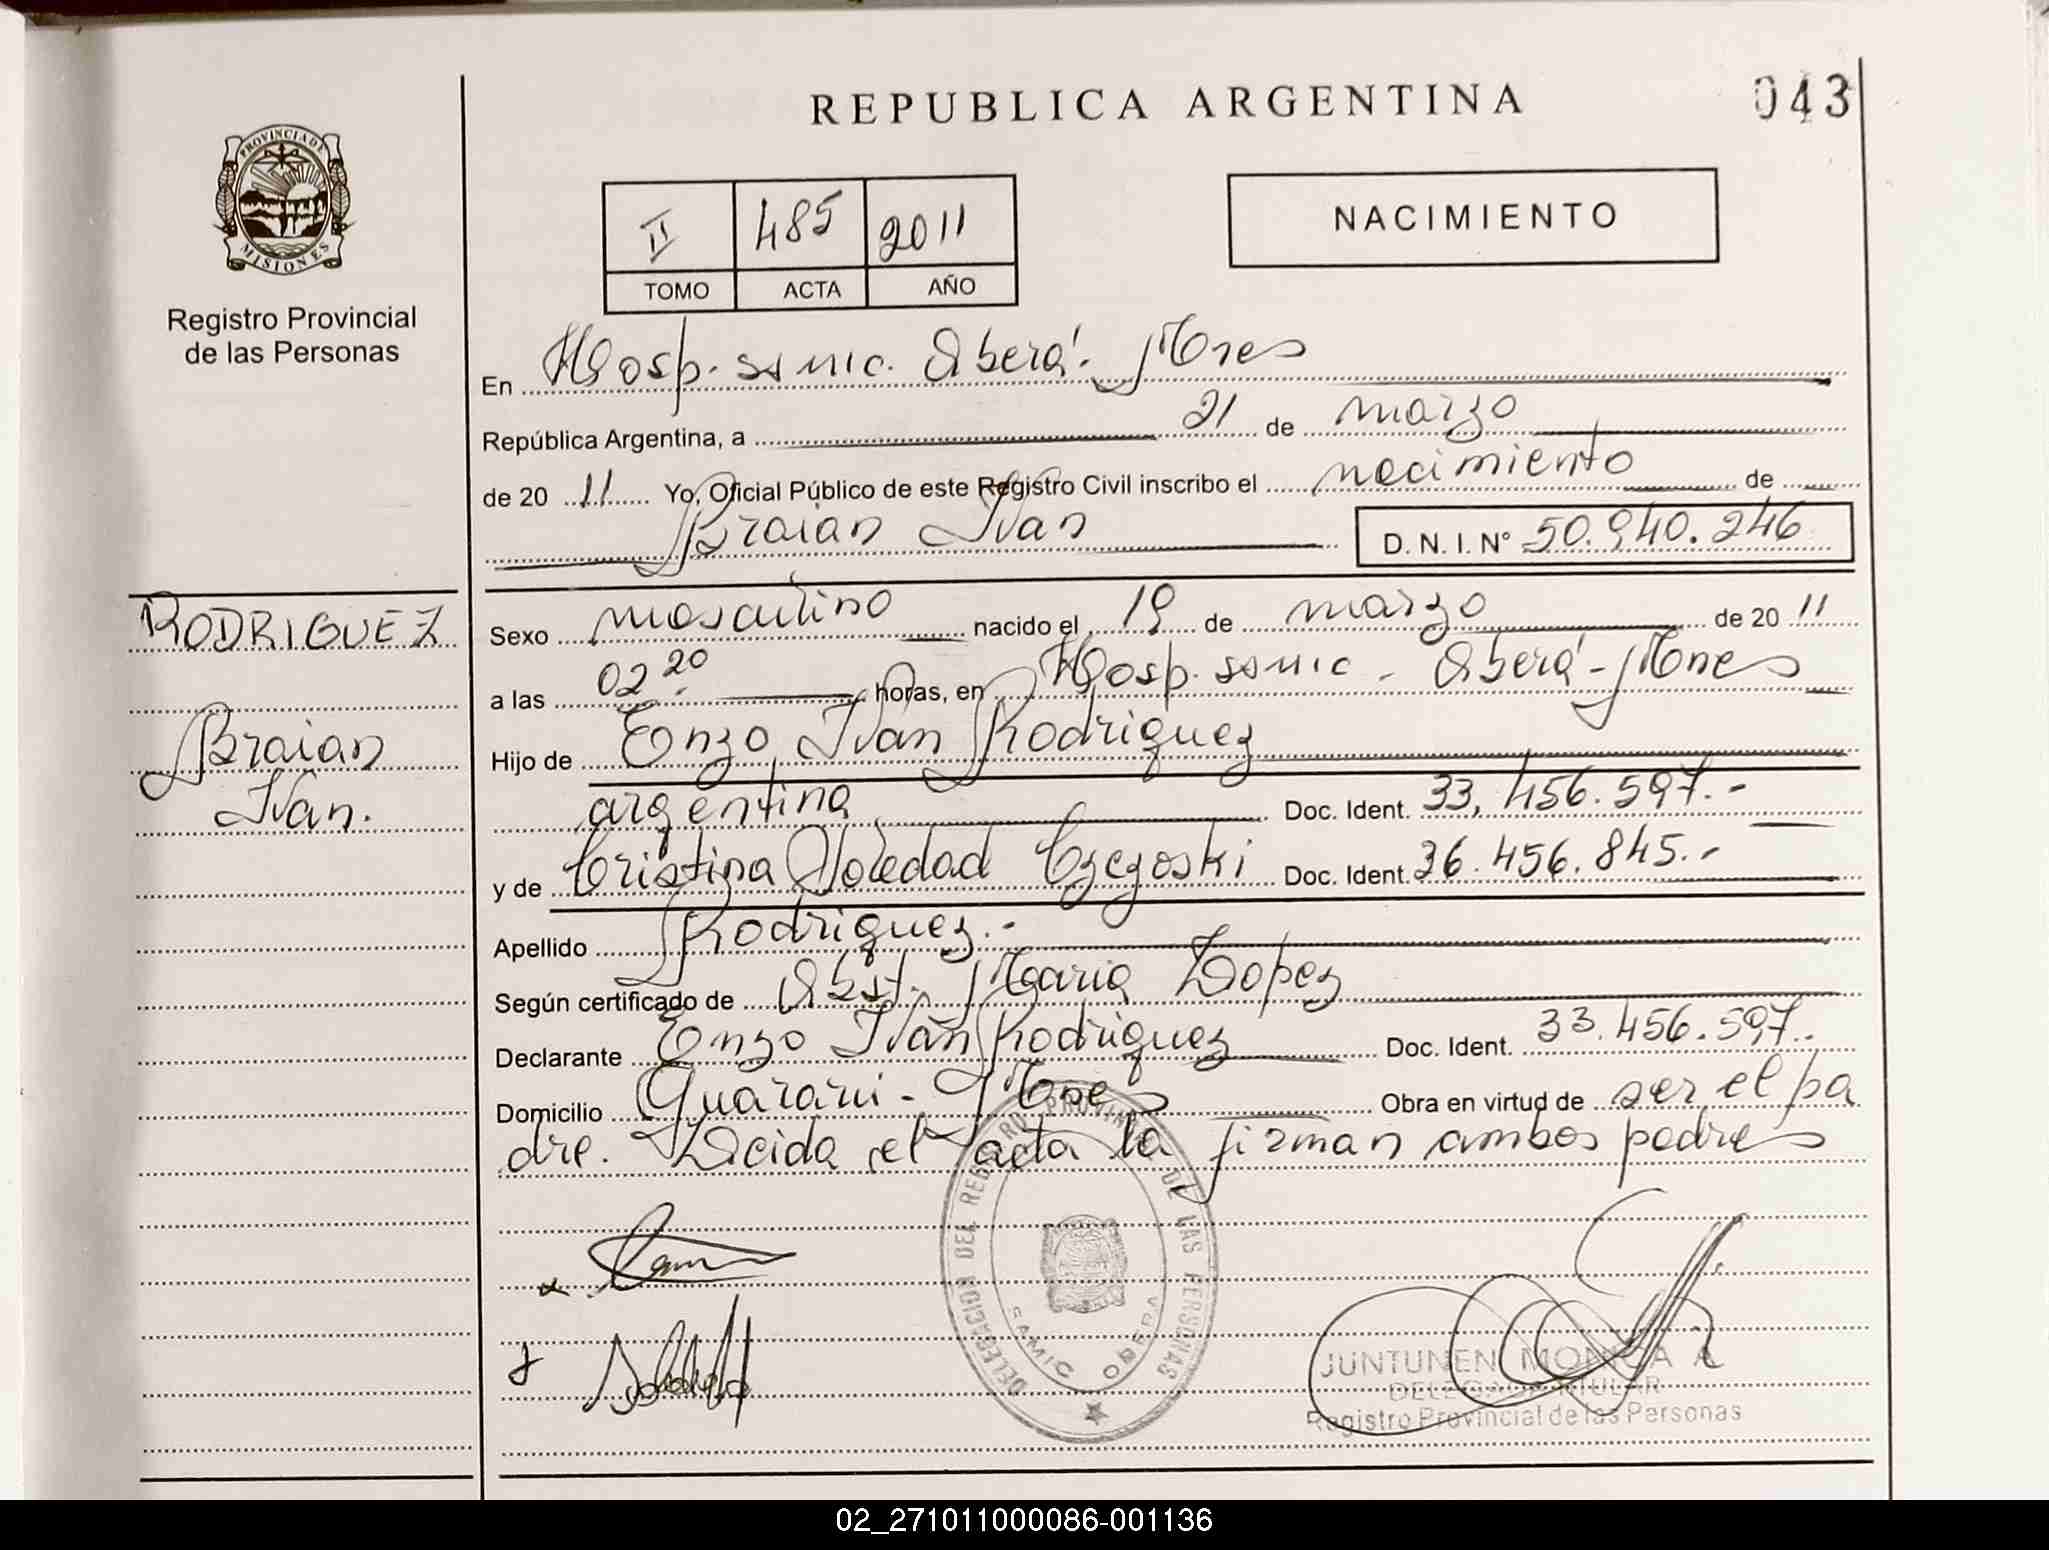 REPUBLICA ARGENTINA
043
PROVINCIA DE
MISIONES
Registro Provincial
de las Personas
II 485 2011
TOMO ACTA AÑO
NACIMIENTO
En Hosp. samic. Oberá. Mnes
República Argentina, a 21 de marzo
de 20 11 Yo, Oficial Público de este Registro Civil inscribo el nacimiento de
Braian Ivan D. N. I. N° 50.940.246
RODRIGUEZ
Braian
Ivan.
Sexo masculino nacido el 19 de marzo de 20 11
a las 02 20 horas, en Hosp. samic. Oberá - Mnes
Hijo de Enzo Ivan Rodriguez
argentina Doc. Ident. 33.456.597.-
y de Cristina Soledad Czezoski Doc. Ident. 36.456.845.-
Apellido Rodriguez.-
Según certificado de Obst. Maria Lopez
Declarante Enzo Ivan Rodriguez Doc. Ident. 33.456.597.
Domicilio Guarani - Mnes Obra en virtud de ser el pa
dre. Leida el acta la firman ambos padres
DELEGACION DEL REGISTRO PROVINCIAL DE LAS PERSONAS
SAMIC OBERA
JUNTUNEN MONICA A
DELEGADA TITULAR
Registro Provincial de las Personas
02_271011000086-001136